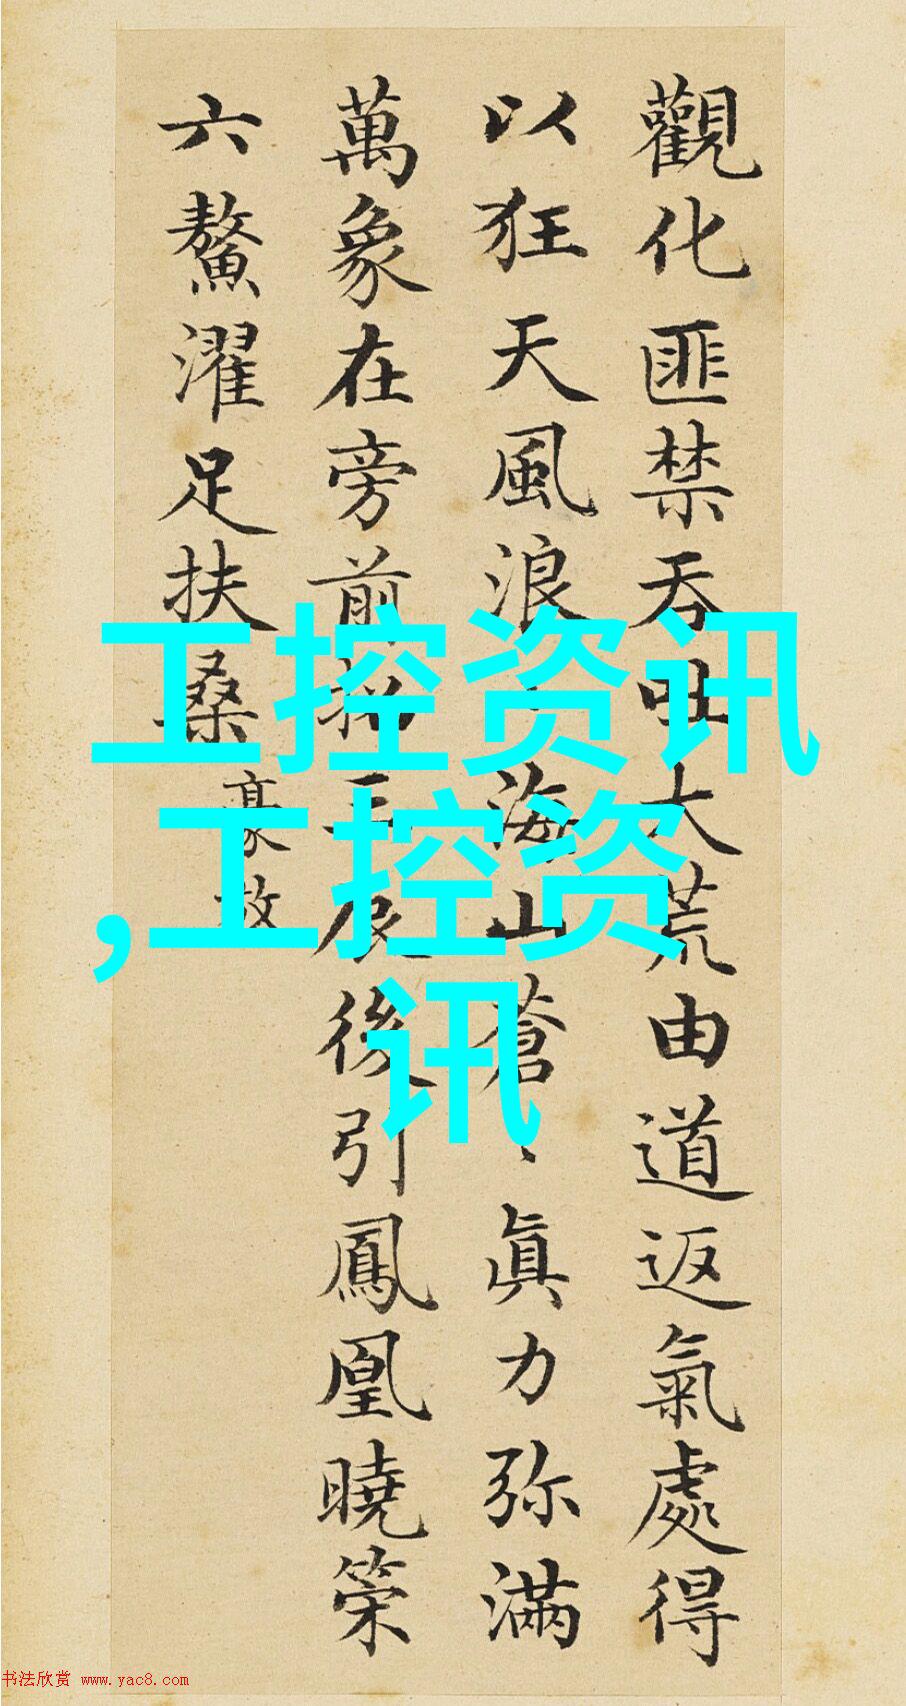 觀化匪禁吞吐大荒由道返氣處得
以狂天風浪、海山蒼、眞力弥滿
萬象在旁前招三辰後引鳳凰曉策
六鰲濯足扶桑
豪放
工控资讯
,工控资
讯
书法欣赏 www.yac8.com